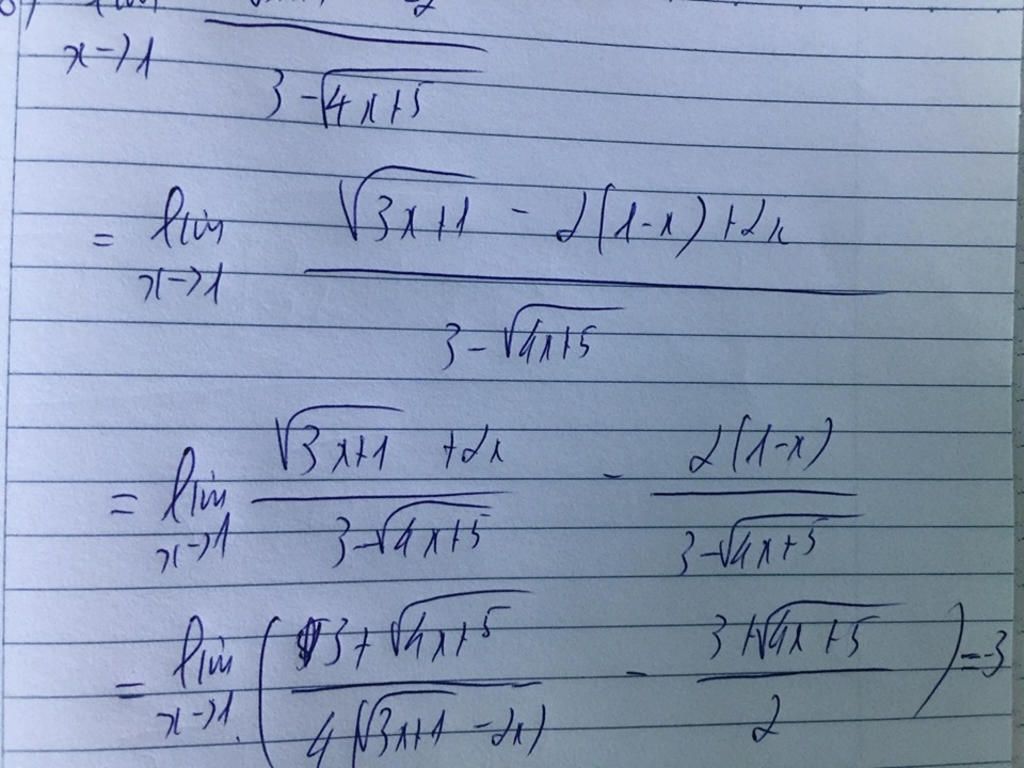 x->1
3-√(4x+5)
= lim x->1 (√(3x+1) - 2(1-x)+2x) / (3-√(4x+5))
= lim x->1 (√(3x+1) +2x) / (3-√(4x+5)) - 2(1-x) / (3-√(4x+5))
= lim x->1 ( (3+√(4x+5)) / (4(√(3x+1) -2x)) - (3+√(4x+5)) / 2 ) =-3